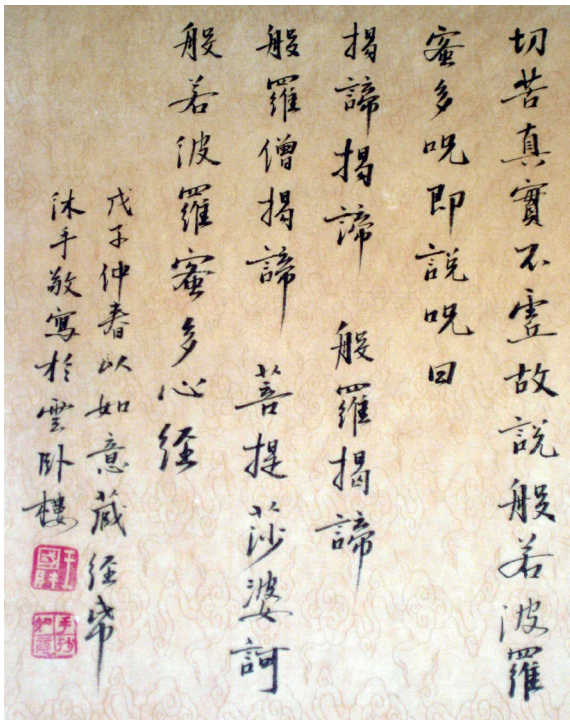 切苦真實不虛故說般若波羅
蜜多咒即說咒曰
揭諦揭諦 般羅揭諦
般羅僧揭諦 菩提莎婆訶
般若波羅蜜多心经
戊子仲春以如意藏经帋
沐手敬寫於雲臥樓